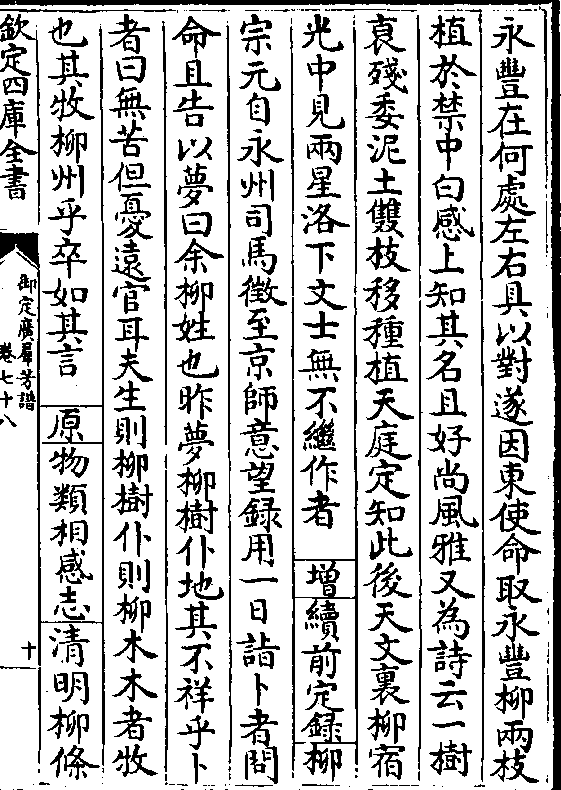 永豐在何處左右具以對遂因東使命取永豐柳兩枝
植於禁中白感上知其名且好尚風雅又為詩云一樹
衰殘委泥土雙枝移種植天庭定知此後天文裏柳宿
光中見兩星洛下文士無不繼作者 增 續前定録 柳
宗元自永州司馬徵至京師意望録用一日詣卜者問
命且告以夢曰余柳姓也昨夢柳樹仆地其不祥乎卜
者曰無苦但憂遠官耳夫生則柳樹仆則柳木木者牧
也其牧柳州乎卒如其言 原 物類相感志 清明柳條
欽定四庫全書
御定廣羣芳譜
卷七十八
十